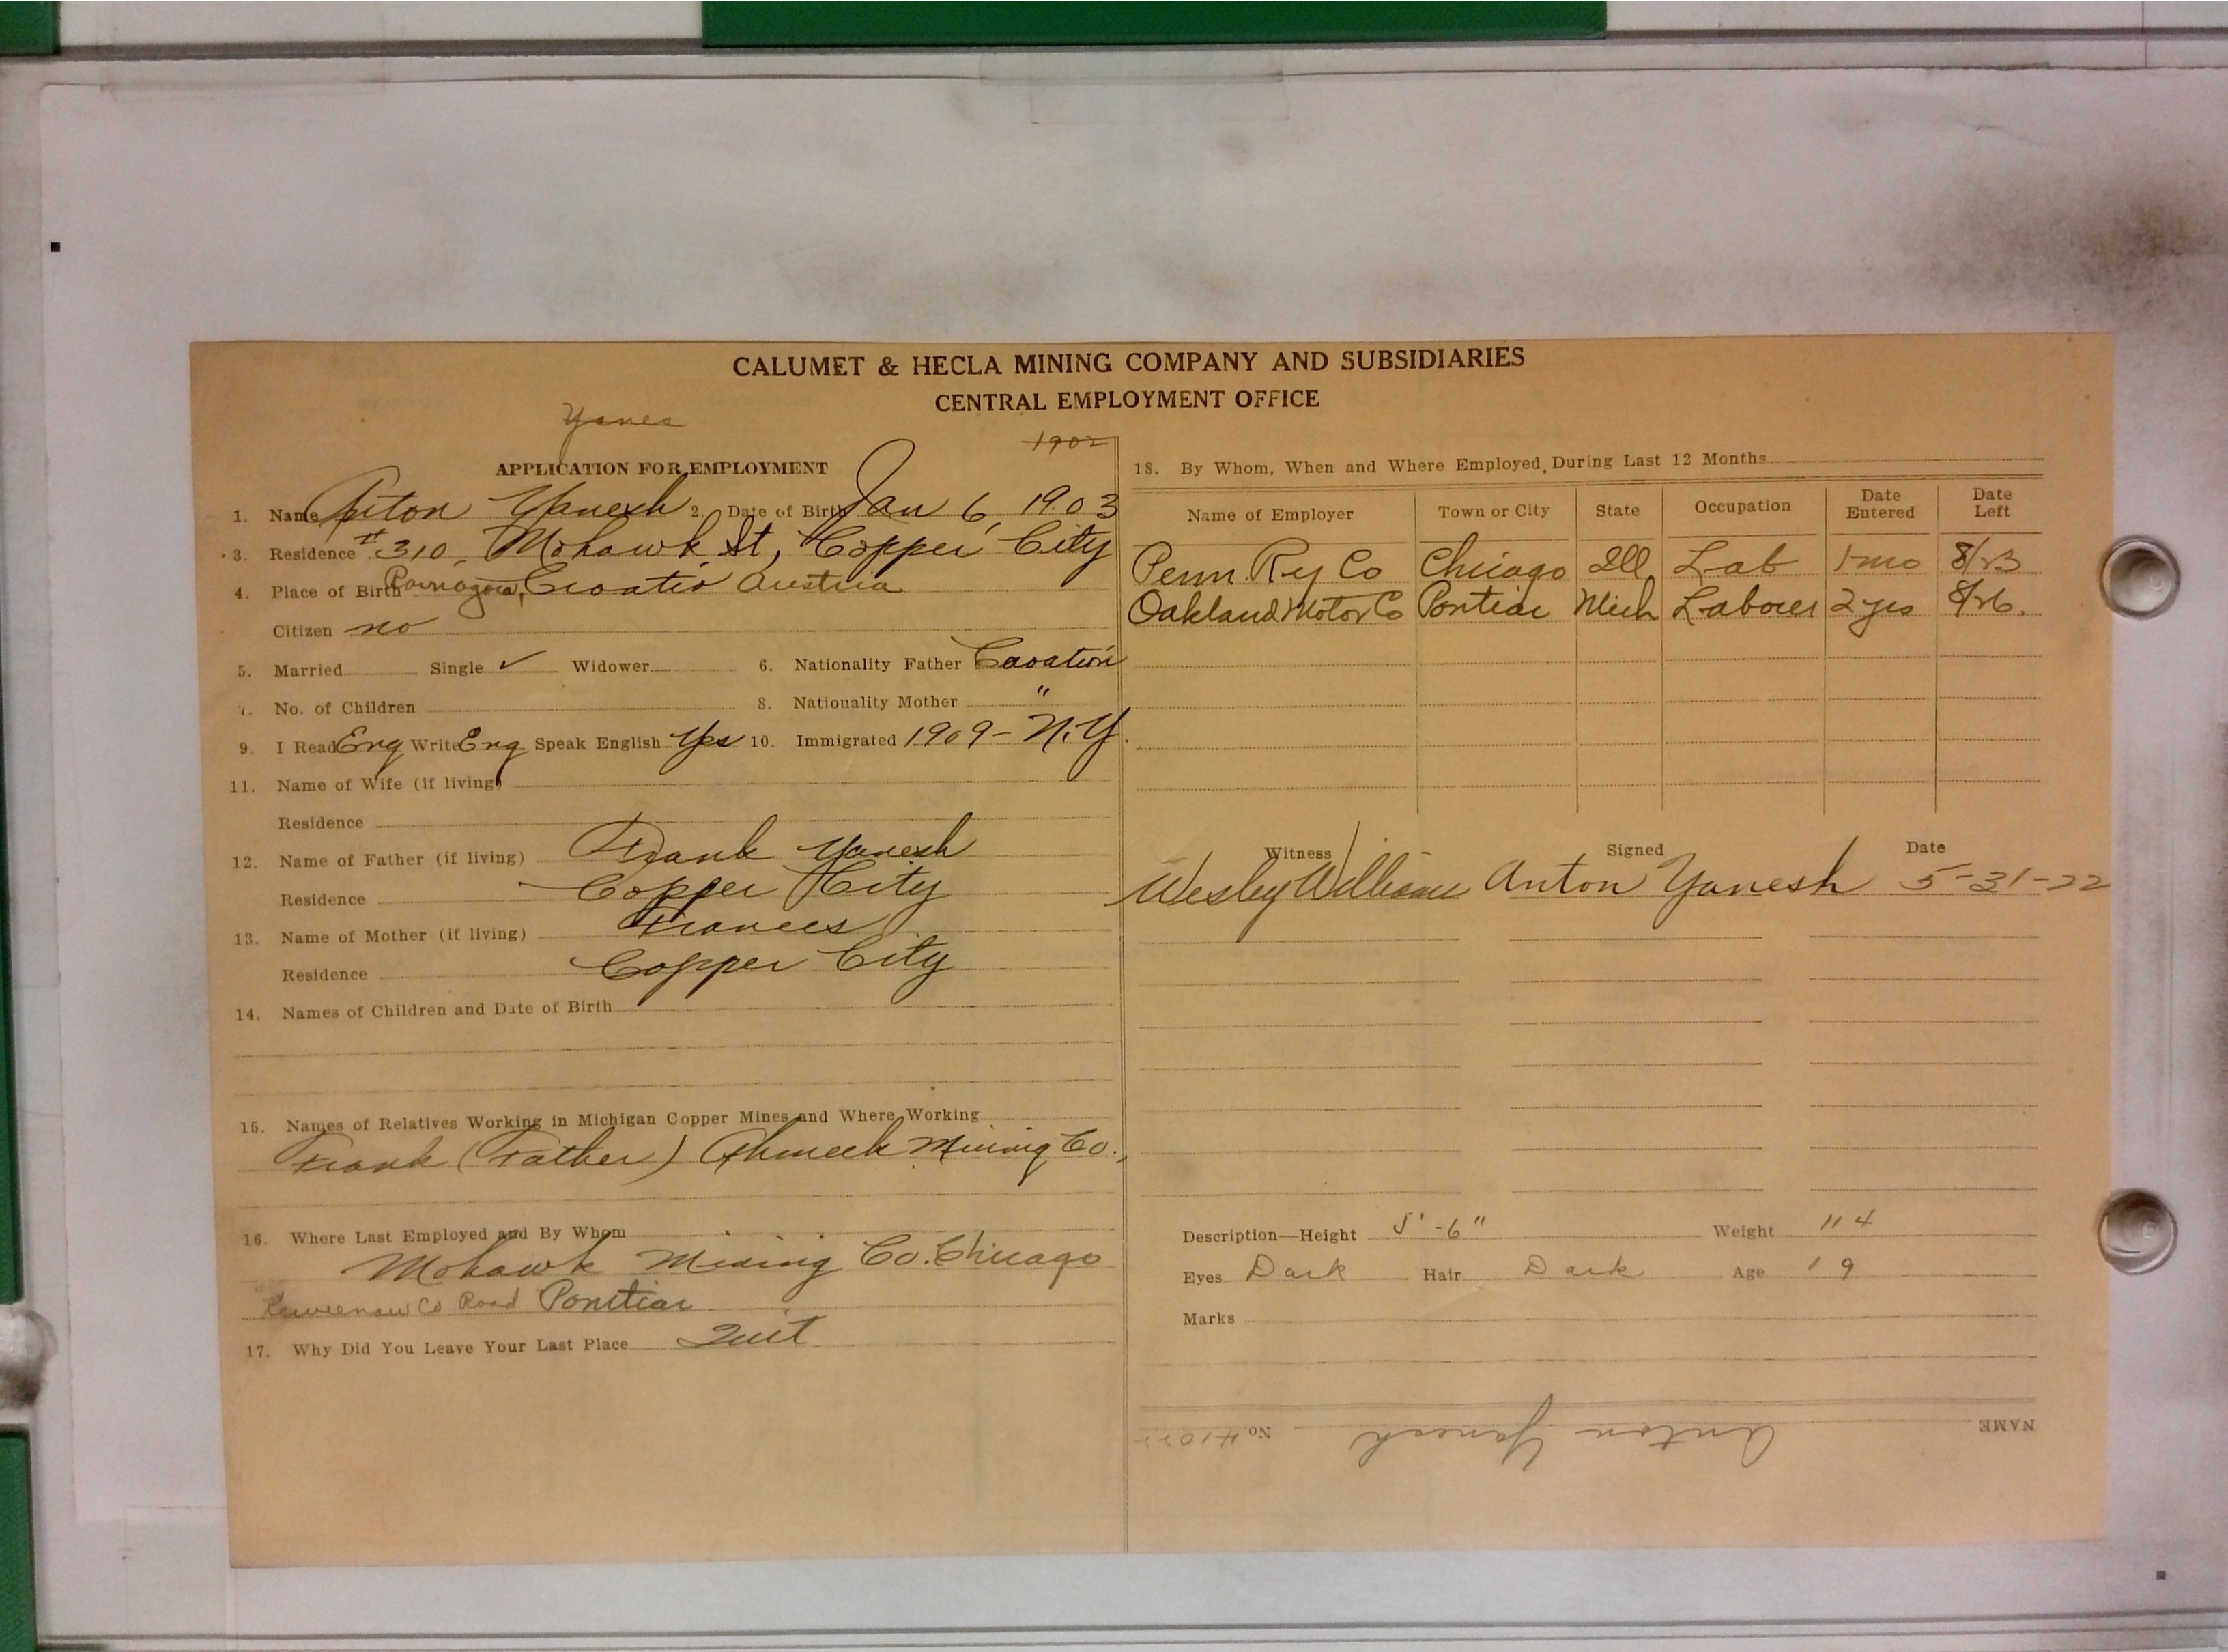 CALUMET & HECLA MINING COMPANY AND SUBSIDIARIES
CENTRAL EMPLOYMENT OFFICE
Yanes
1902
APPLICATION FOR EMPLOYMENT
1. Name Anton Yanesh 2. Date of Birth Jan 6, 1903
3. Residence #310, Mohawk St, Copper City
4. Place of Birth Croatia Austria
Citizen no
5. Married Single ✓ Widower 6. Nationality Father Croatian
7. No. of Children 8. Nationality Mother "
9. I Read Eng Write Eng Speak English Yes 10. Immigrated 1909 - N.Y.
11. Name of Wife (if living)
Residence
12. Name of Father (if living) Frank Yanesh
Residence Copper City
13. Name of Mother (if living) Frances
Residence Copper City
14. Names of Children and Date of Birth
15. Names of Relatives Working in Michigan Copper Mines and Where Working
Frank (Father) Ahmeek Mining Co.,
16. Where Last Employed and By Whom
Mohawk Mining Co. Chicago
Keweenaw Co Road Pontiac
17. Why Did You Leave Your Last Place Quit
18. By Whom, When and Where Employed During Last 12 Months
Name of Employer Town or City State Occupation Date Entered Date Left
Penn. Ry Co Chicago Ill Lab 1 mo 8/23
Oakland Motor Co Pontiac Mich Laborer 2 yrs 8/26.
Witness Signed Date
Wesley Williams Anton Yanesh 5-31-22
Description—Height 5'-6" Weight 114
Eyes Dark Hair Dark Age 19
Marks
NAME Anton Yanesh No.